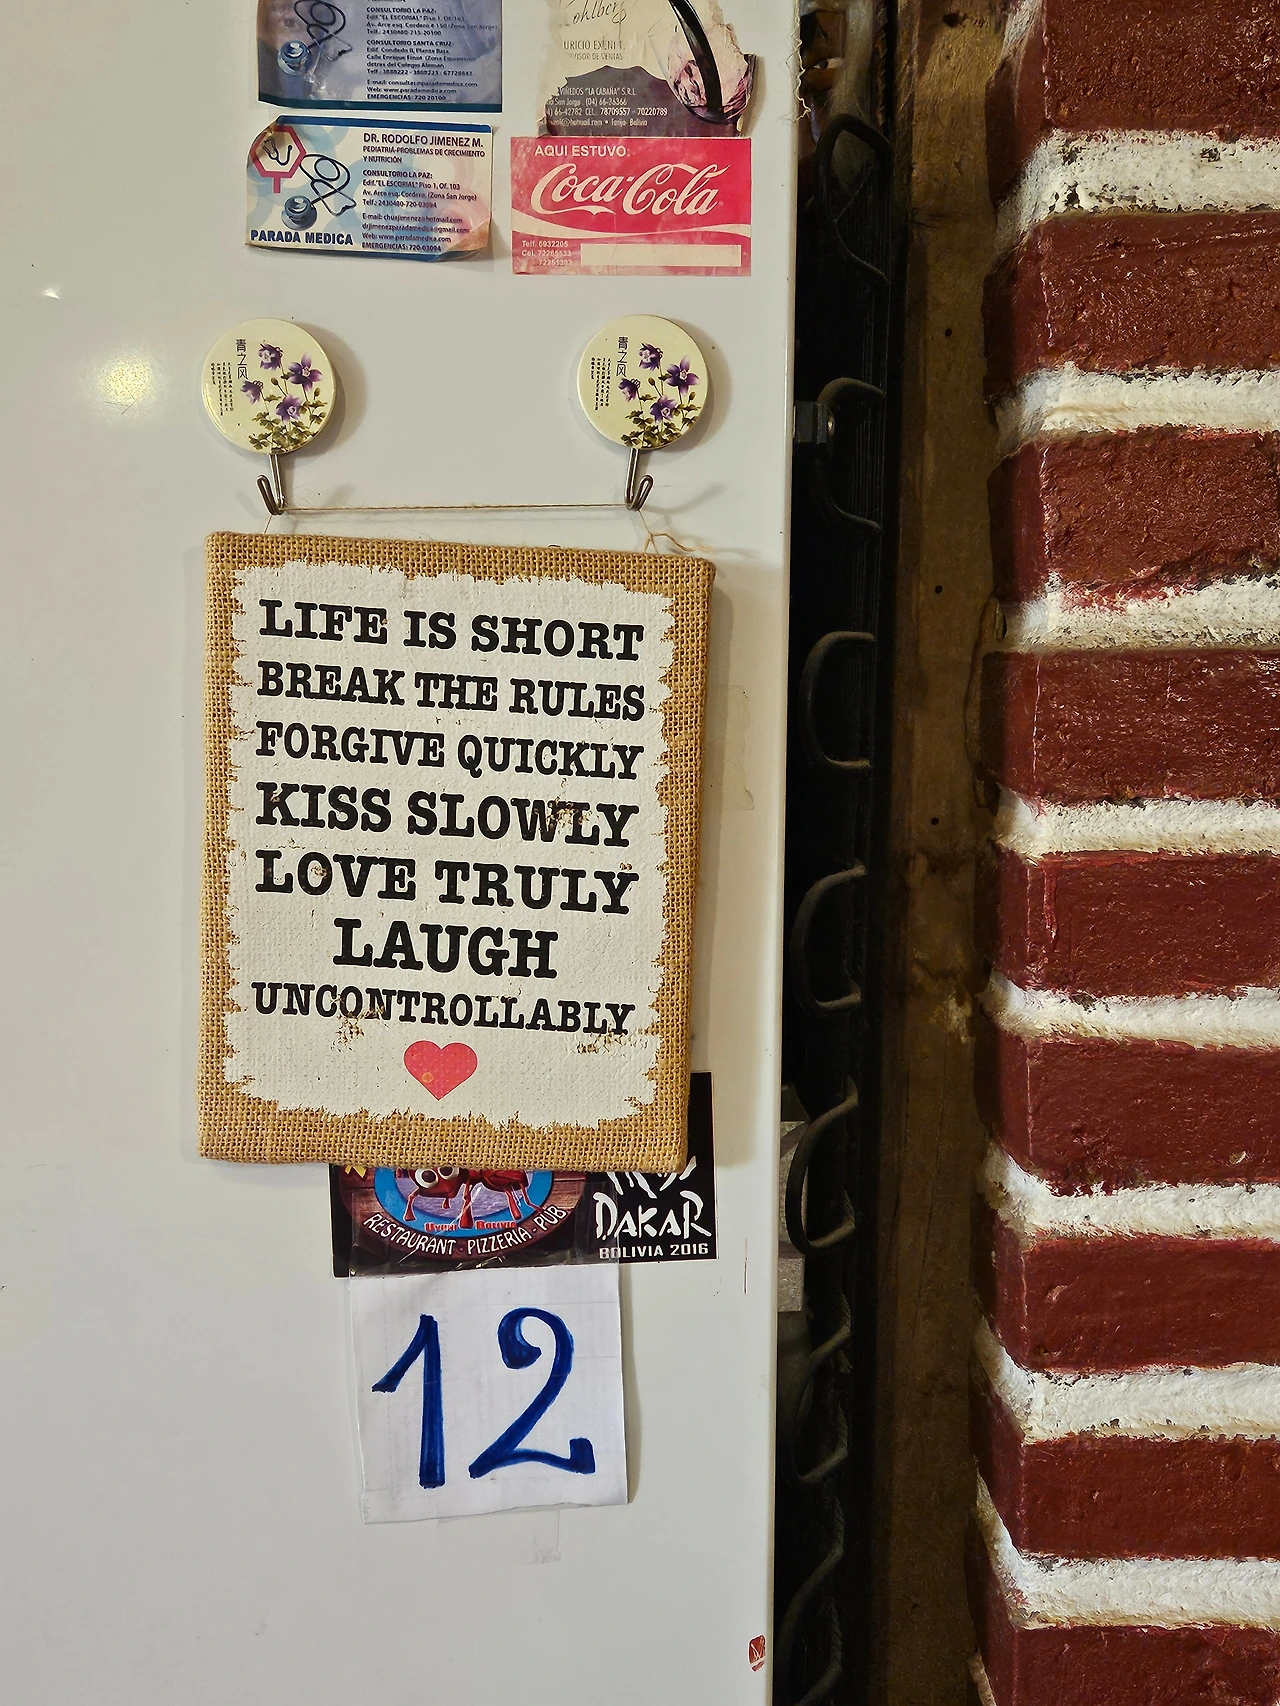 CONSULTORIO LA PAZ:
Edif. "EL ESCORIAL" Piso 1, Of. 103
Av. Arce esq. Cordero # 150 (Zona San Jorge)
Telf.: 2430480-715-20100
CONSULTORIO SANTA CRUZ:
Edif. Condado II, Planta Baja
Calle Enrique Finot (Zona Equipetrol)
detras del Colegio Alemán
Telf.: 3888222 - 3888223 - 67728841
E-mail: consultas@paradamedica.com
Web: www.paradamedica.com
EMERGENCIAS: 720 20100
Kohlberg
URICIO EXENI T.
VISOR DE VENTAS
VIÑEDOS "LA CABAÑA" S.R.L.
San Jorge (04) 66-36366
66-42782 CEL.: 78709557 - 70220789
@hotmail.com • Tarija - Bolivia
DR. RODOLFO JIMENEZ M.
PEDIATRIA-PROBLEMAS DE CRECIMIENTO
Y NUTRICIÓN
CONSULTORIO LA PAZ:
Edif. "EL ESCORIAL" Piso 1, Of. 103
Av. Arce esq. Cordero. (Zona San Jorge)
Telf.: 2430480-720-03094
E-mail: churjimenez@hotmail.com
drjimenezparadamedica@gmail.com
Web: www.paradamedica.com
EMERGENCIAS: 720-03094
PARADA MEDICA
AQUI ESTUVO:
Coca-Cola
Telf. 6932205
Cel. 72265533
72251393
青之风
青之风
LIFE IS SHORT
BREAK THE RULES
FORGIVE QUICKLY
KISS SLOWLY
LOVE TRULY
LAUGH
UNCONTROLLABLY
Uyuni Bolivia
RESTAURANT - PIZZERIA - PUB
DAKAR
BOLIVIA 2016
12